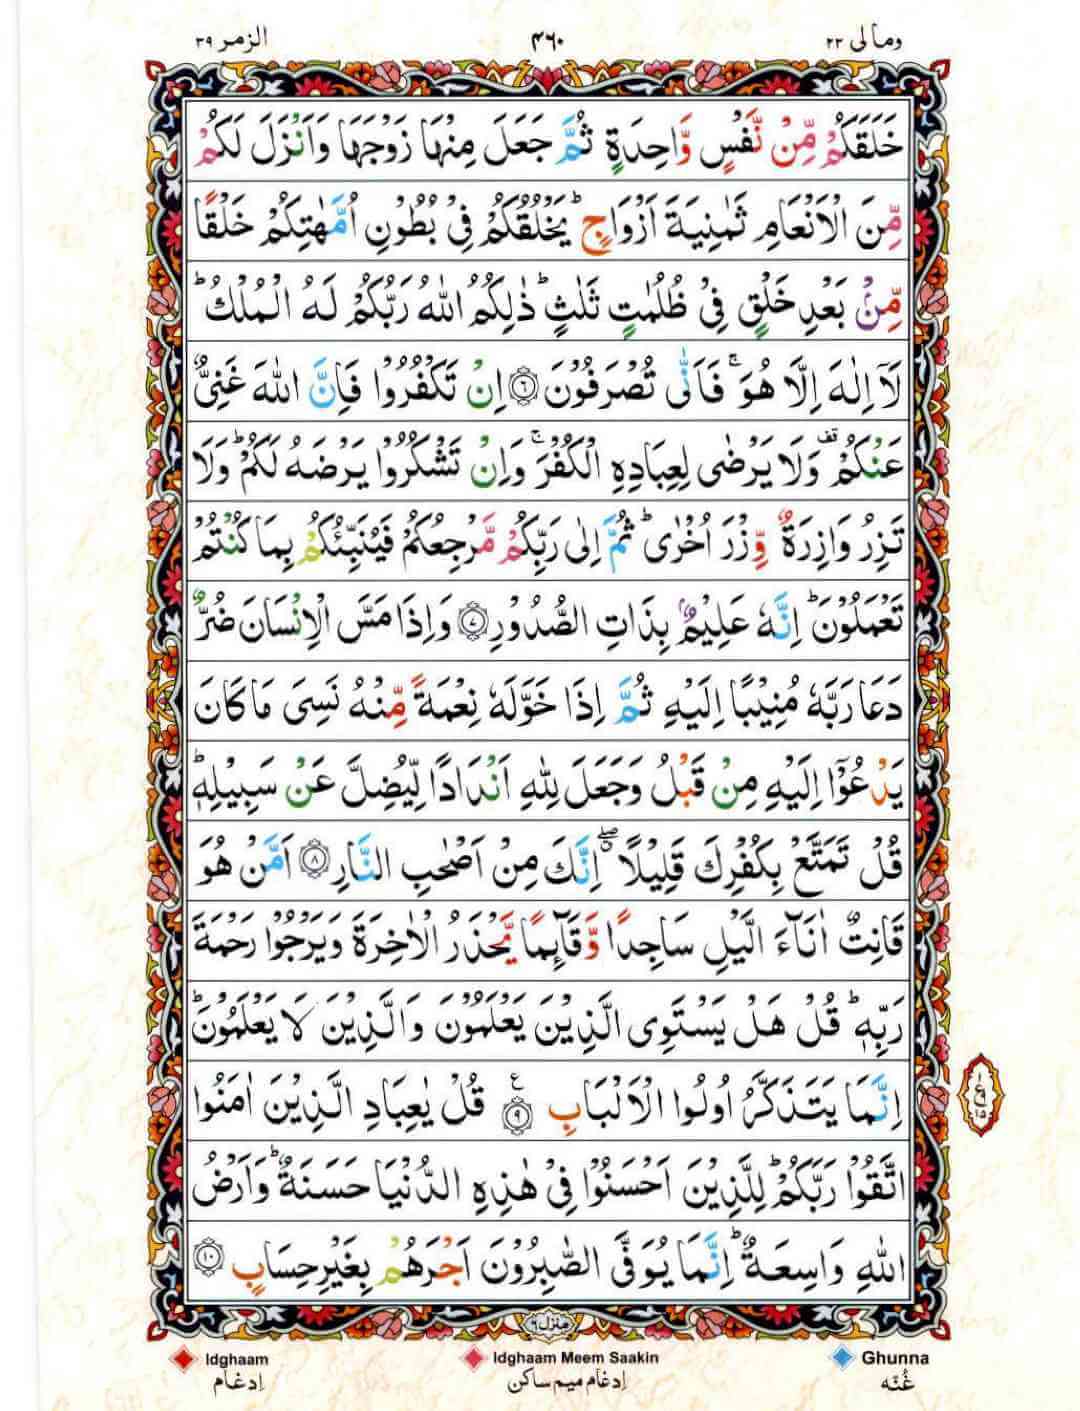 ومالی ۲۳ ۴۶۰ الزمر ۳۹
خَلَقَكُمْ مِّنْ نَّفْسٍ وَّاحِدَةٍ ثُمَّ جَعَلَ مِنْهَا زَوْجَهَا وَاَنْزَلَ لَكُمْ
مِّنَ الْاَنْعَامِ ثَمٰنِيَةَ اَزْوَاجٍ ؕ يَخْلُقُكُمْ فِيْ بُطُوْنِ اُمَّهٰتِكُمْ خَلْقًا
مِّنْۢ بَعْدِ خَلْقٍ فِيْ ظُلُمٰتٍ ثَلٰثٍ ؕ ذٰلِكُمُ اللّٰهُ رَبُّكُمْ لَهُ الْمُلْكُ ؕ
لَاۤ اِلٰهَ اِلَّا هُوَ ۚ فَاَنّٰى تُصْرَفُوْنَ ۝۶ اِنْ تَكْفُرُوْا فَاِنَّ اللّٰهَ غَنِيٌّ
عَنْكُمْ ۫ وَلَا يَرْضٰى لِعِبَادِهِ الْكُفْرَ ۚ وَاِنْ تَشْكُرُوْا يَرْضَهُ لَكُمْ ؕ وَلَا
تَزِرُ وَازِرَةٌ وِّزْرَ اُخْرٰى ؕ ثُمَّ اِلٰى رَبِّكُمْ مَّرْجِعُكُمْ فَيُنَبِّئُكُمْ بِمَا كُنْتُمْ
تَعْمَلُوْنَ ؕ اِنَّهٗ عَلِيْمٌۢ بِذَاتِ الصُّدُوْرِ ۝۷ وَاِذَا مَسَّ الْاِنْسَانَ ضُرٌّ
دَعَا رَبَّهٗ مُنِيْبًا اِلَيْهِ ثُمَّ اِذَا خَوَّلَهٗ نِعْمَةً مِّنْهُ نَسِيَ مَا كَانَ
يَدْعُوْۤا اِلَيْهِ مِنْ قَبْلُ وَجَعَلَ لِلّٰهِ اَنْدَادًا لِّيُضِلَّ عَنْ سَبِيْلِهٖ ؕ
قُلْ تَمَتَّعْ بِكُفْرِكَ قَلِيْلًا ۖ اِنَّكَ مِنْ اَصْحٰبِ النَّارِ ۝۸ اَمَّنْ هُوَ
قَانِتٌ اٰنَآءَ الَّيْلِ سَاجِدًا وَّقَآئِمًا يَّحْذَرُ الْاٰخِرَةَ وَيَرْجُوْا رَحْمَةَ
رَبِّهٖ ؕ قُلْ هَلْ يَسْتَوِى الَّذِيْنَ يَعْلَمُوْنَ وَالَّذِيْنَ لَا يَعْلَمُوْنَ ؕ
اِنَّمَا يَتَذَكَّرُ اُولُوا الْاَلْبَابِ ۝۹ قُلْ يٰعِبَادِ الَّذِيْنَ اٰمَنُوا
اتَّقُوْا رَبَّكُمْ ؕ لِلَّذِيْنَ اَحْسَنُوْا فِيْ هٰذِهِ الدُّنْيَا حَسَنَةٌ ؕ وَاَرْضُ
اللّٰهِ وَاسِعَةٌ ؕ اِنَّمَا يُوَفَّى الصّٰبِرُوْنَ اَجْرَهُمْ بِغَيْرِ حِسَابٍ ۝۱۰
منزل ۶
Idghaam Idghaam Meem Saakin Ghunna
اِدغام اِدغام میم ساکن غُنّه